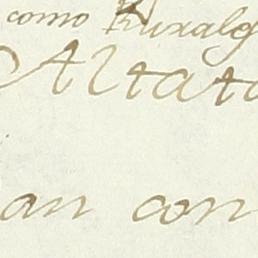 como Ruralg
Altata
an con